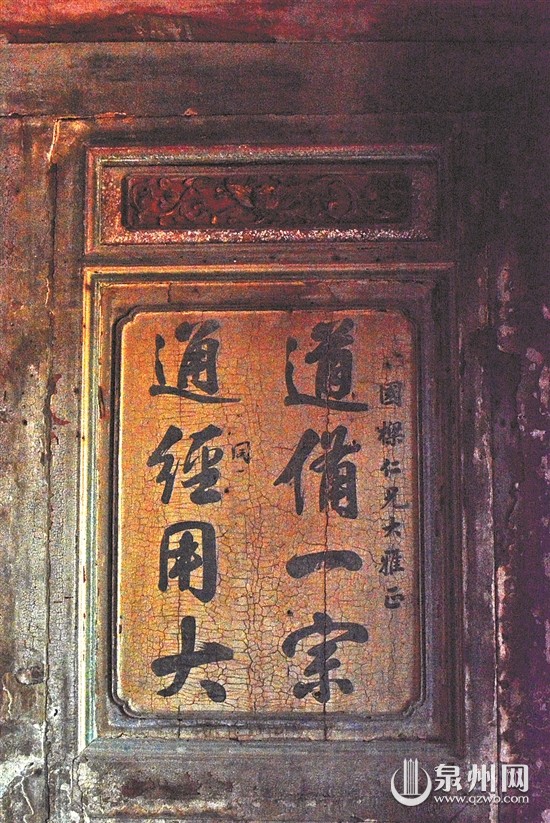 國樑仁兄大雅正
道備一宗
通經用大
泉州网
www.qzwb.com